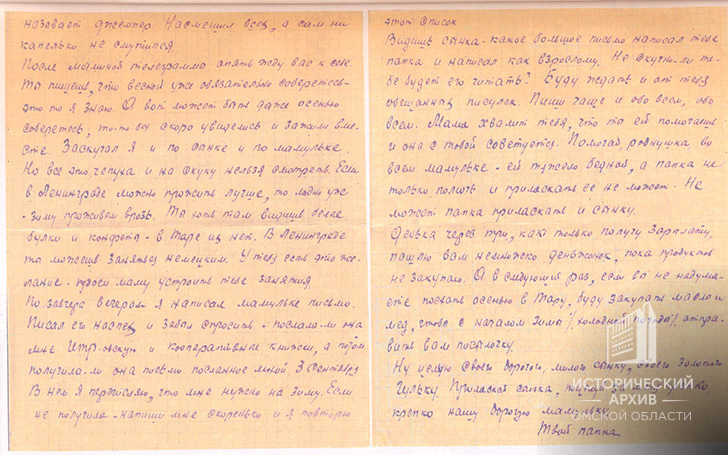 называет джемпер Насмешил всех, а сам ни
капельки не смутился.
После маминой телеграммы опять жду вас к себе.
Ты пишешь, что весной уже обязательно соберетесь -
это-то я знаю. А вот может быть даже осенью
соберетесь, то-то бы скоро увиделись и зажили вме-
сте. Заскучал я и по сынке и по мамульке.
Но все это чепуха и на скуку нельзя смотреть. Если
в Ленинграде можно прожить лучше, то ладно уж
- зиму проживем врозь. Ты хоть там видишь белые
булки и конфеты - в Таре их нет. В Ленинграде
ты можешь заняться немецким. У тебя есть это же-
лание - проси маму устроить тебе занятия.
По завчера вечером я написал мамульке письмо.
Писал его наспех и забыл спросить - послала-ли она
мне ИТР-овскую и кооперативные книжки, а потом
получила-ли она письмо посланное мной 3 сентября
В нем я перечислял, что мне нужно на зиму. Если
не получила - напиши мне скоренько и я повторю
этот список
Видишь сынка - какое большое письмо написал тебе
папка и написал как взрослому. Не скучно-ли те-
бе будет его читать? Буду ждать и от тебя
обещанных писулек. Пиши чаще и обо всем, обо
всем. Мама хвалит тебя, что ты ей помогаешь
и она с тобой советуется. Помогай, роднушка, во
всем мамульке - ей тяжело бедной, а папка не
только помочь и приласкать ее не может. Не
может папка приласкать и сынку.
Денька через три, как только получу зарплату,
пошлю вам немножко деньжонок, пока продуктов
не закупаю. А в следующий раз, если вы не надума-
ете поехать осенью в Тару, буду закупать масло и
мед, чтобы с началом зимы /холодной погоды/ отпра-
вить вам посылочку.
Ну целую своего дорогого, милого сынку, своего золотого
Гульку. Приласкай сынка,
крепко нашу дорогую мамульку
Твой папка
ИСТОРИЧЕСКИЙ
АРХИВ
ОМСКОЙ ОБЛАСТИ